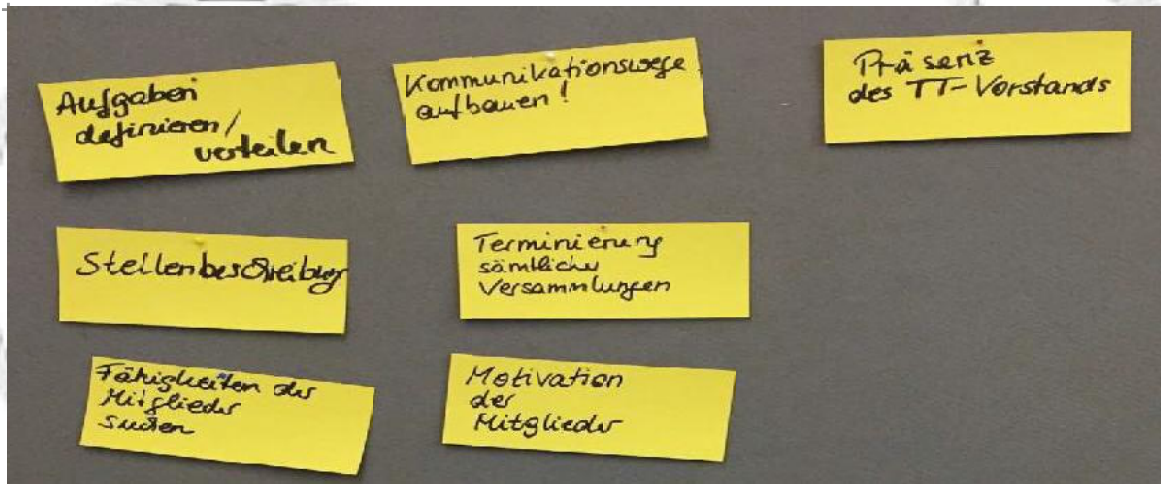 Aufgaben
definieren/
verteilen
Kommunikationswege
aufbauen!
Präsenz
des TT-Vorstands
Stellenbeschreibung
Terminierung
sämtlicher
Versammlungen
Fähigkeiten der
Mitglieder
suchen
Motivation
der
Mitglieder